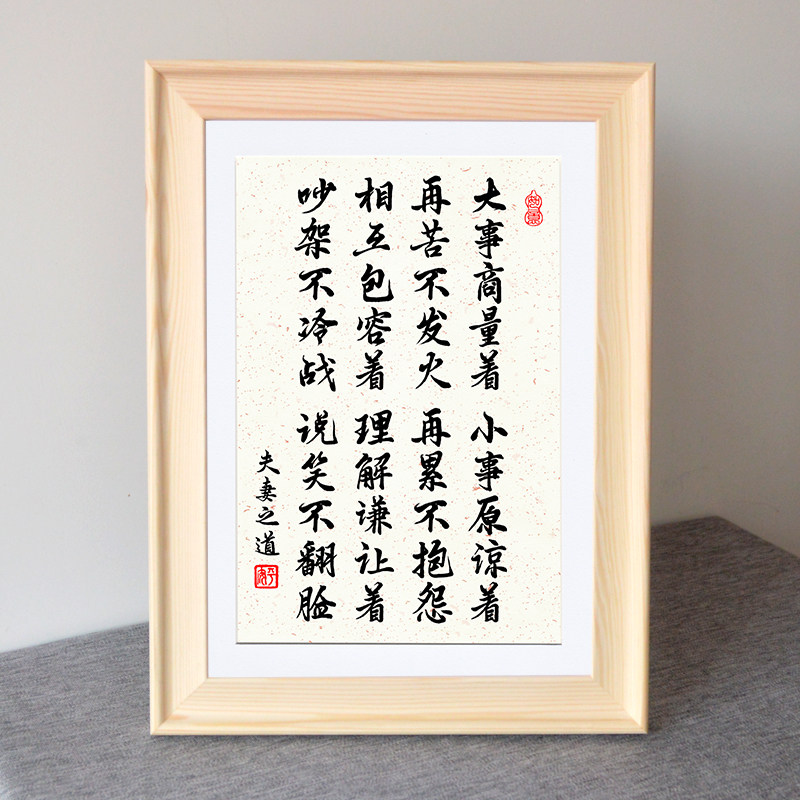 大事商量着 小事原谅着
再苦不发火 再累不抱怨
相互包容着 理解谦让着
吵架不冷战 说笑不翻脸
夫妻之道